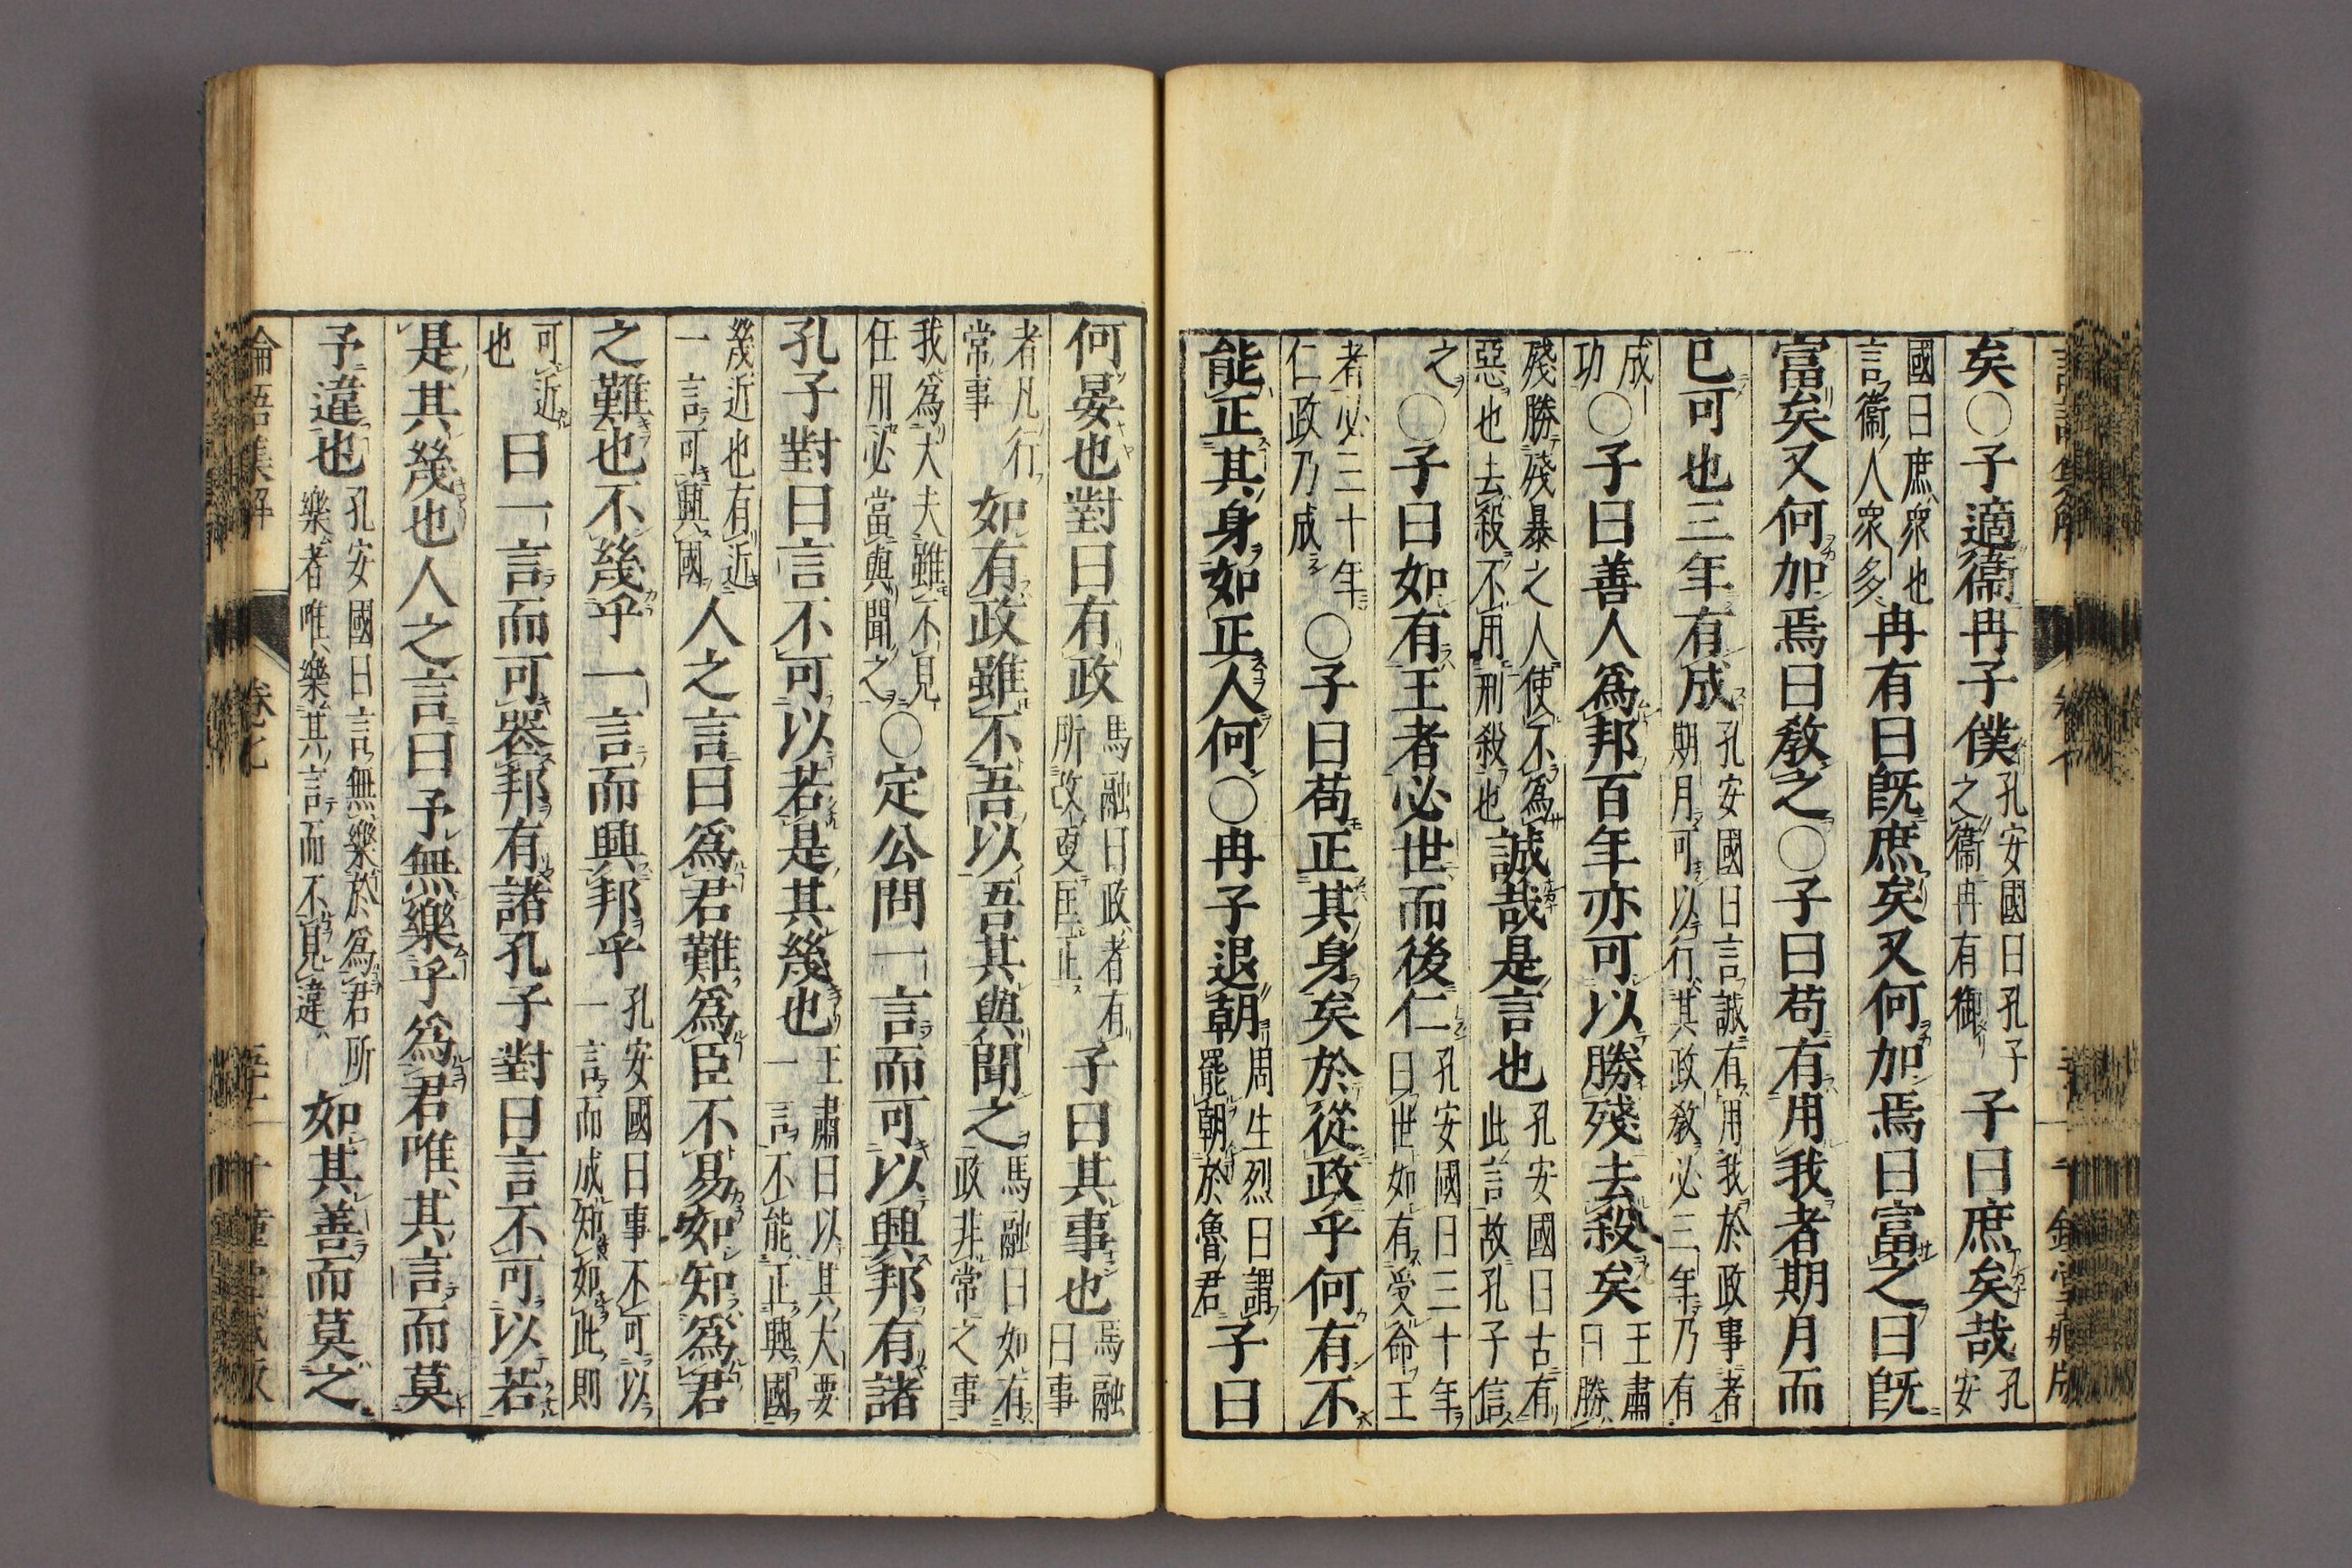 矣○子適衞冉子僕孔安國曰孔子之衞冉有御子曰庶矣哉孔安
國曰庶衆也言衞人衆多冉有曰既庶矣又何加焉曰富之曰既
富矣又何加焉曰教之○子曰苟有用我者期月而
已可也三年有成孔安國曰言誠有用我於政事者期月可以行其政教必三年乃有
成功○子曰善人爲邦百年亦可以勝殘去殺矣王肅曰勝
殘勝殘暴之人使不爲惡也去殺不用刑殺也誠哉是言也孔安國曰古有此言故孔子信
之○子曰如有王者必世而後仁孔安國曰三十年曰世如有受命王
者必三十年仁政乃成○子曰苟正其身矣於從政乎何有不
能正其身如正人何○冉子退朝周生烈曰謂罷朝於魯君子曰
何晏也對曰有政馬融曰政者有所改更匡正子曰其事也馬融曰事
者凡行常事如有政雖不吾以吾其與聞之馬融曰如有政非常之事
我爲大夫雖不見任用必當與聞之○定公問一言而可以興邦有諸
孔子對曰言不可以若是其幾也王肅曰以其大要一言不能正興國
幾近也有近一言可興國人之言曰爲君難爲臣不易如知爲君
之難也不幾乎一言而興邦乎孔安國曰事不可以一言而成知如此則
可近也曰一言而可喪邦有諸孔子對曰言不可以若
是其幾也人之言曰予無樂乎爲君唯其言而莫
予違也孔安國曰言無樂於爲君所樂者唯樂其言而不見違如其善而莫之
論語集解 卷七